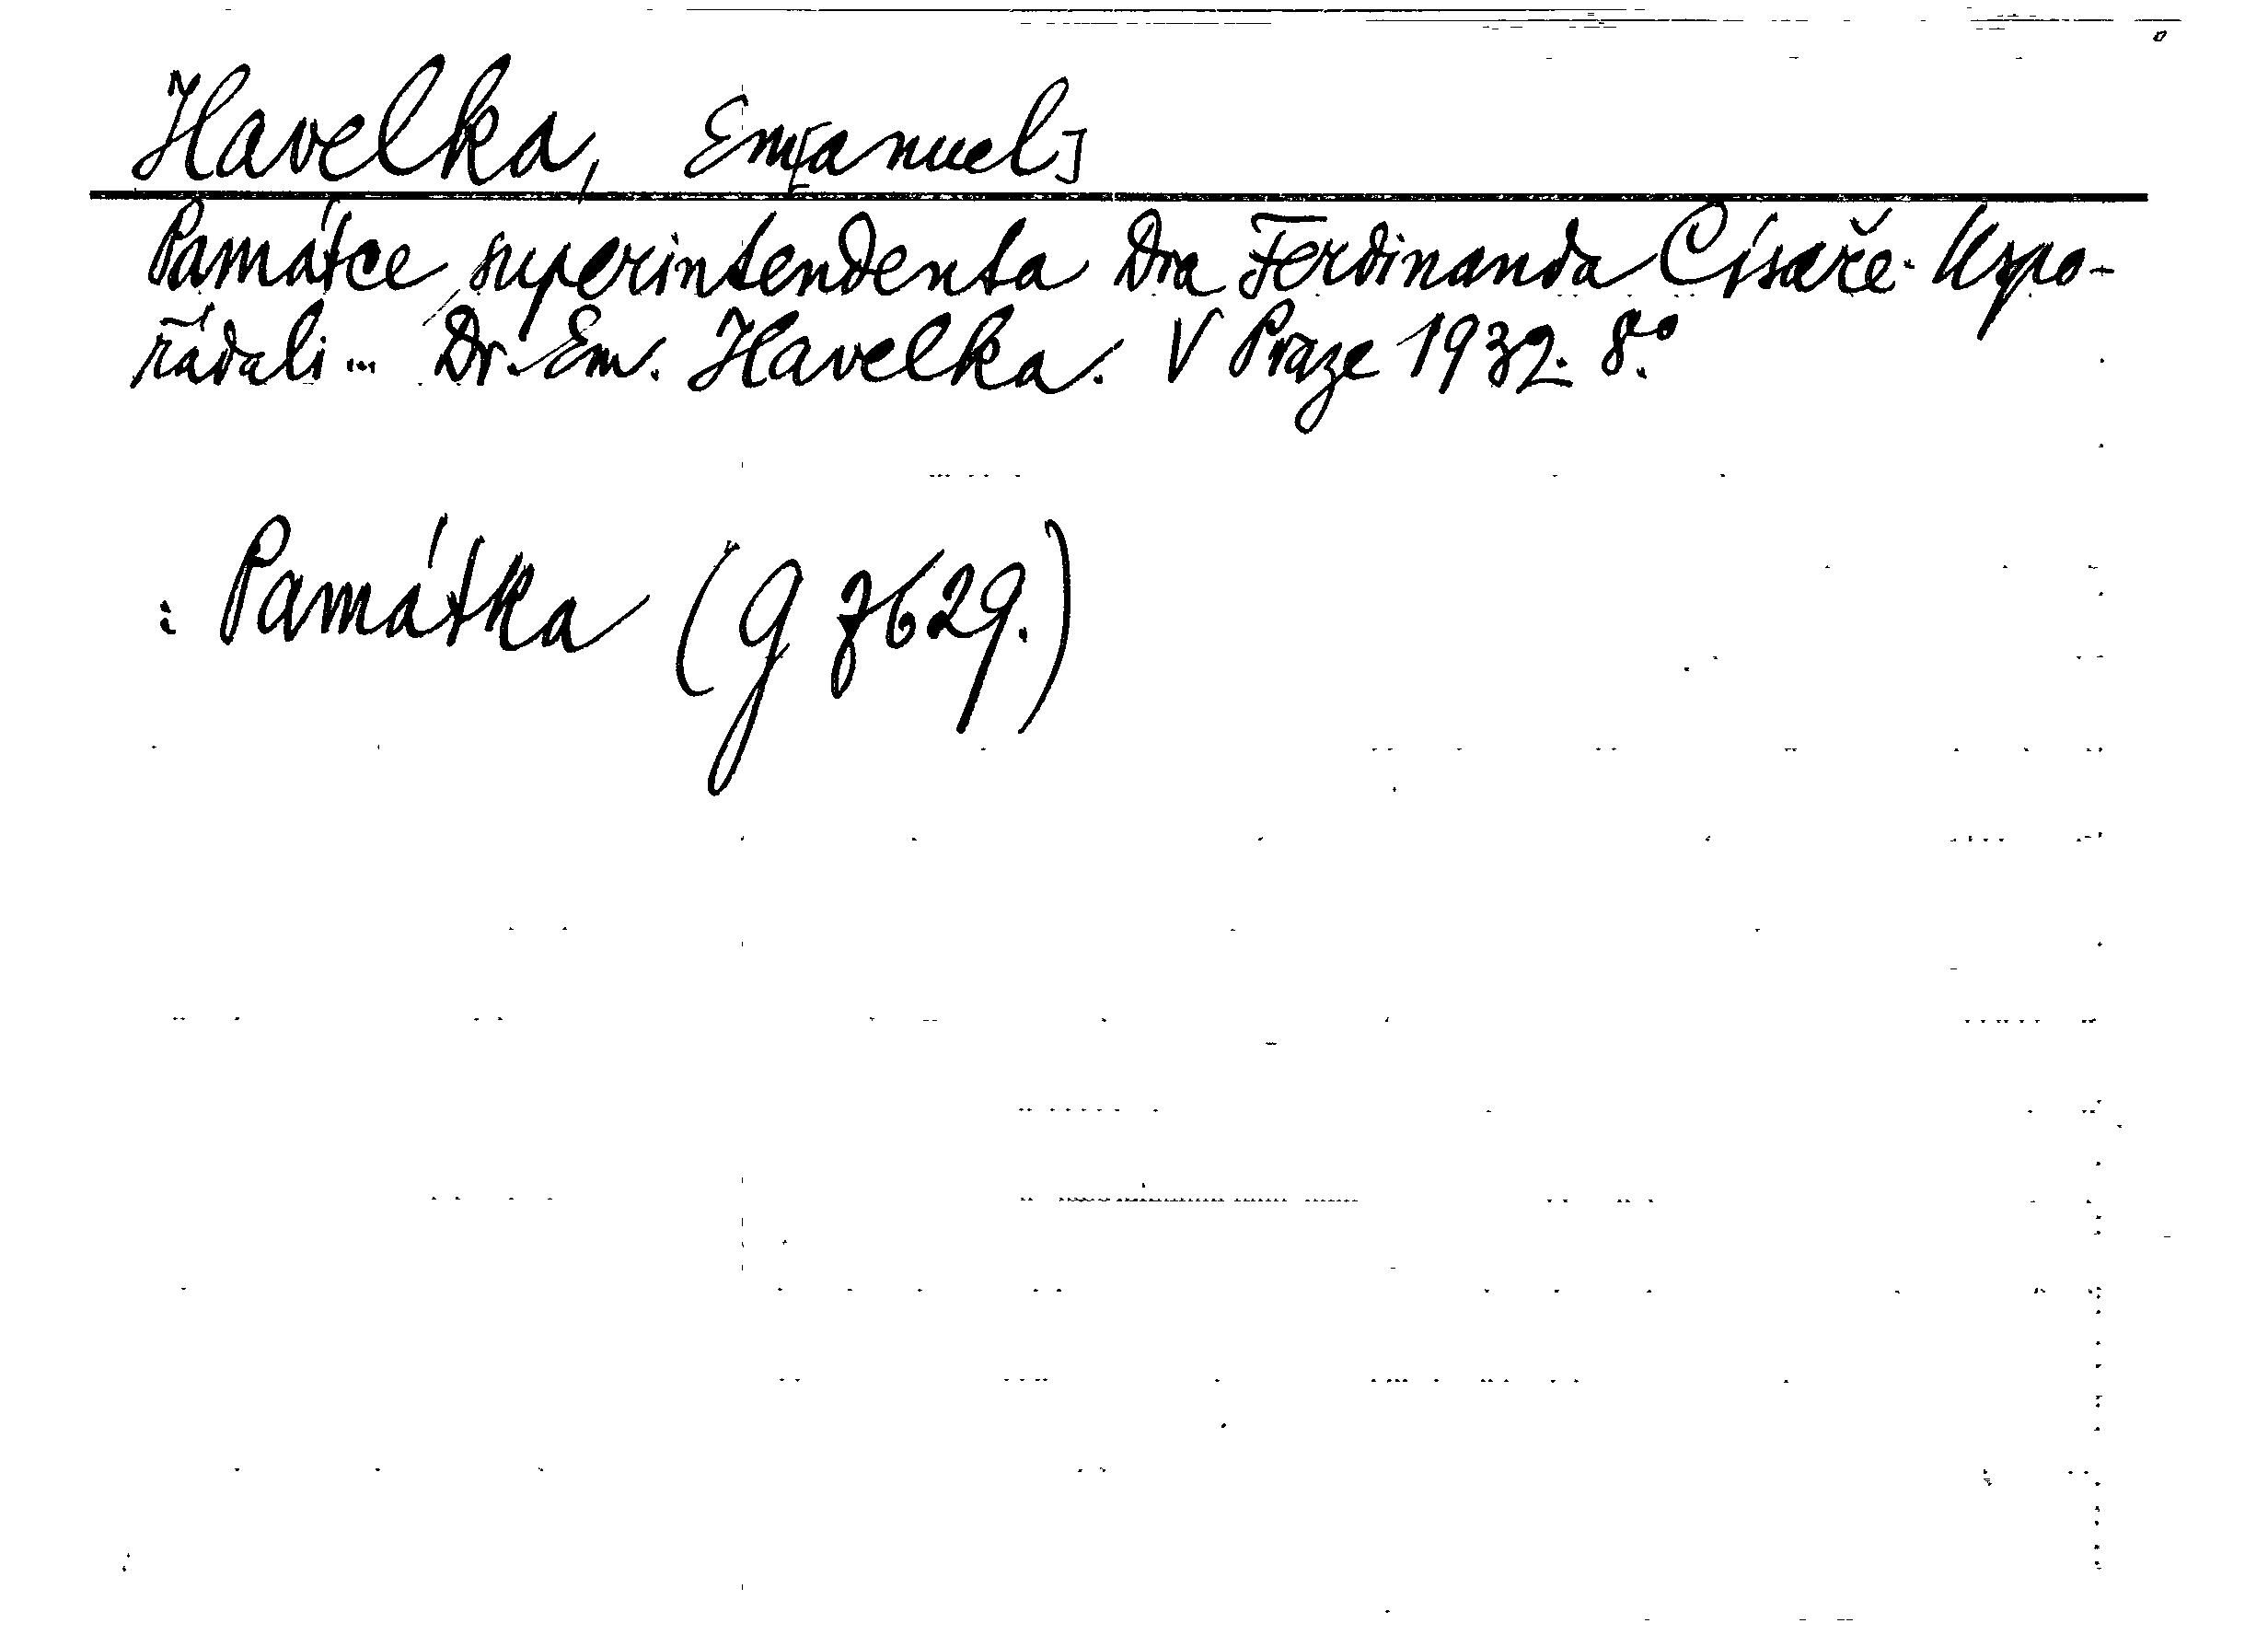 Havelka, Em[anuel]
Památce superintendenta Dra Ferdinanda Císaře. Uspo-
řádali ... Dr. Em. Havelka. V Praze 1932. 8.º
: Památka (g 7629.)